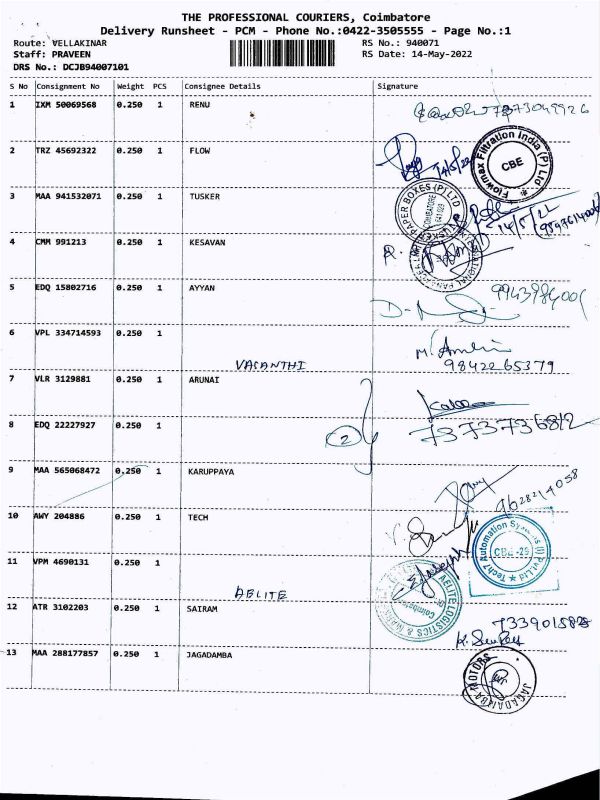 THE PROFESSIONAL COURIERS, Coimbatore
Delivery Runsheet - PCM - Phone No.:0422-3505555 - Page No.:1
Route: VELLAKINAR RS No.: 940071
Staff: PRAVEEN RS Date: 14-May-2022
DRS No.: DCJB94007101
S No Consignment No Weight PCS Consignee Details Signature
1 IXM 50069568 0.250 1 RENU
2 TRZ 45692322 0.250 1 FLOW 14/5/22 Flowmax Filtration India (P) Ltd CBE
3 MAA 941532071 0.250 1 TUSKER PAPER BOXES (P) LTD COIMBATORE 641 029 14/5/22
4 CMM 991213 0.250 1 KESAVAN
5 EDQ 15802716 0.250 1 AYYAN
6 VPL 334714593 0.250 1 VASANTHI 9842265379
7 VLR 3129881 0.250 1 ARUNAI
8 EDQ 22227927 0.250 1 2 7373736812
9 MAA 565068472 0.250 1 KARUPPAYA 9628214058
10 AWY 204886 0.250 1 TECH Tech7 Automation Systems (I) Pvt Ltd CBE -29
11 VPM 4690131 0.250 1 AELITE AELITE LOGISTICS & Coimbatore
12 ATR 3102203 0.250 1 SAIRAM
13 MAA 288177857 0.250 1 JAGADAMBA JAGADAMBA MOTORS